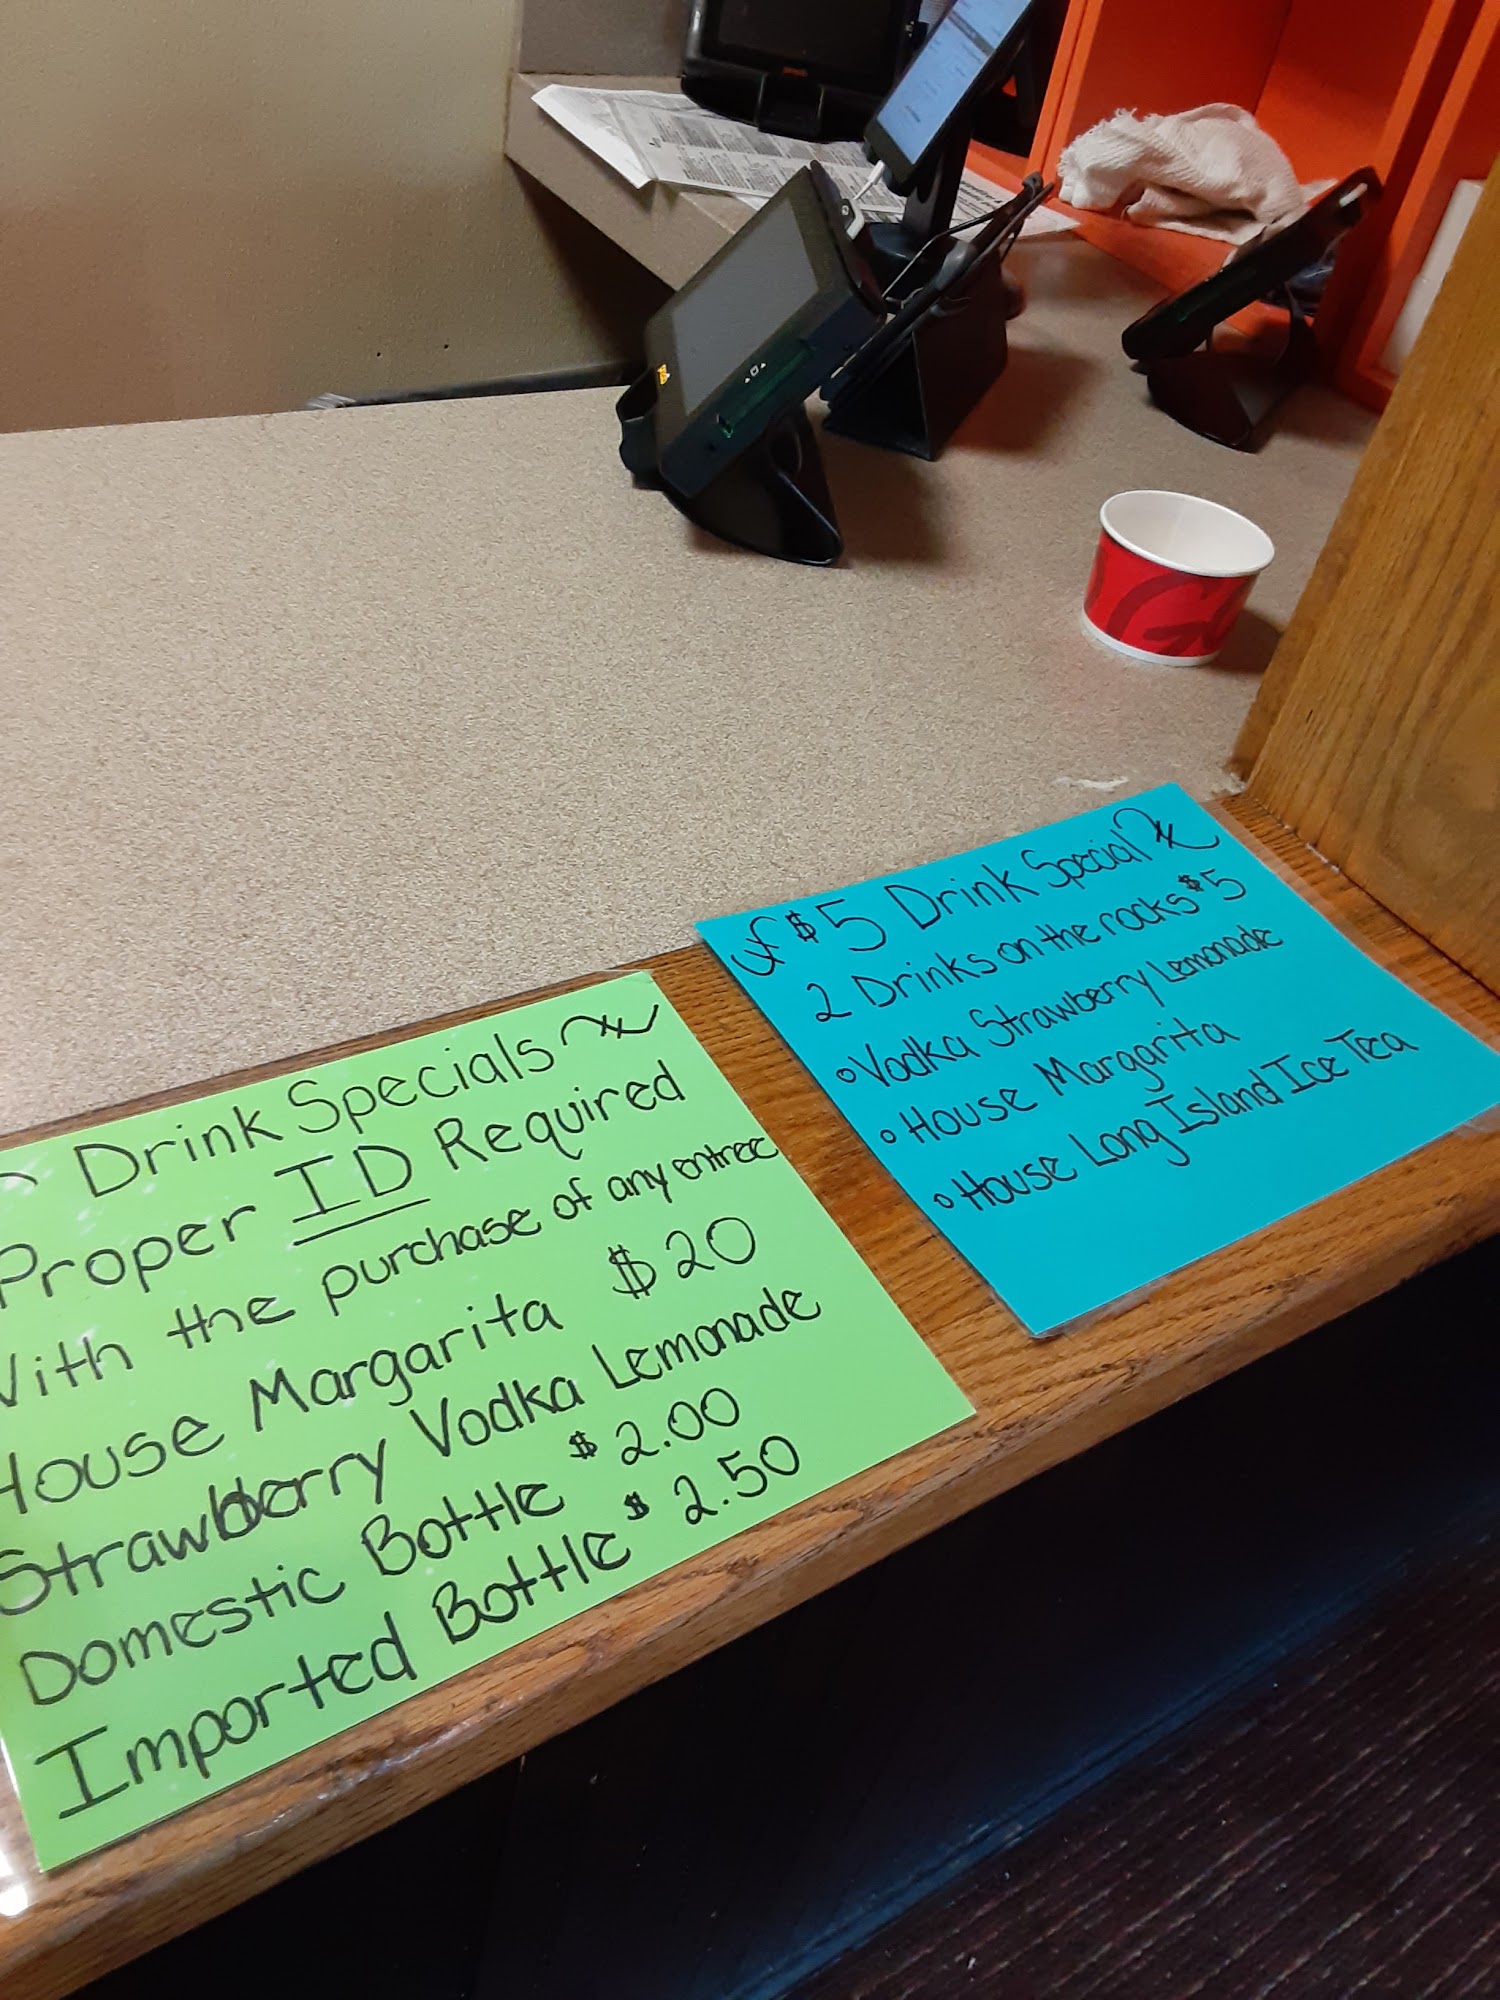 Drink Specials
Proper ID Required
With the purchase of any entree
House Margarita $20
Strawberry Vodka Lemonade
Domestic Bottle $2.00
Imported Bottle $2.50
$5 Drink Special
2 Drinks on the rocks $5
Vodka Strawberry Lemonade
House Margarita
House Long Island Ice Tea